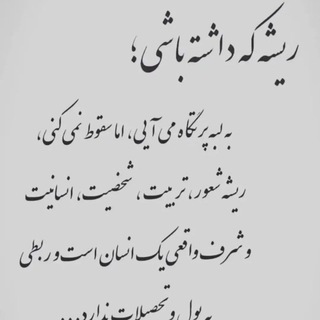 ریشه که داشته باشی؛
به لبه پرتگاه می‌آیی، اما سقوط نمی‌کنی،
ریشه شعور، تربیت، شخصیت، انسانیت
و شرف واقعی یک انسان است و ربطی
به پول و تحصیلات ندارد...